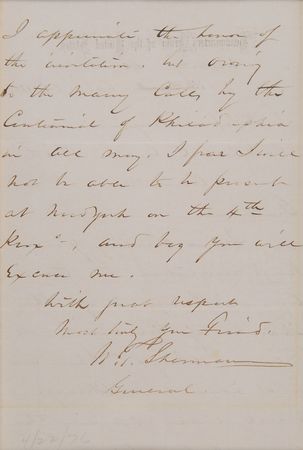 I appreciate the honor of
the invitation, but owing
to the many Calls by the
Centennial of Philadelphia
in all may, I fear I will
not be able to be present
at New York on the 4th
Prox°, and beg you will
Excuse me.
With great respect
Most truly your Friend.
W. T. Sherman
General
4/22/76